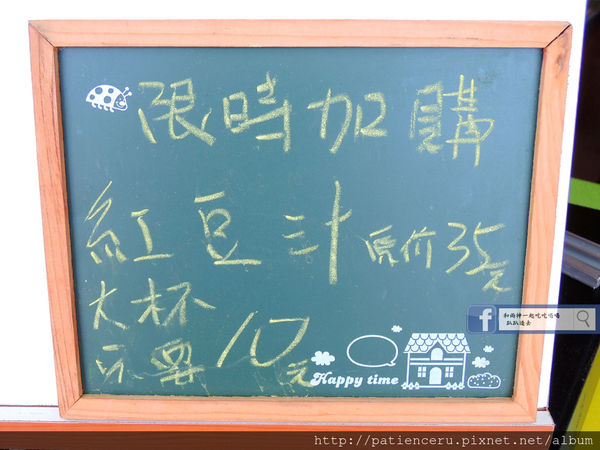 限時加購
紅豆汁 原价35元
大杯
只要10元
Happy time
和両神一起吃吃喝喝
趴趴造去
http://patienceru.pixnet.net/album